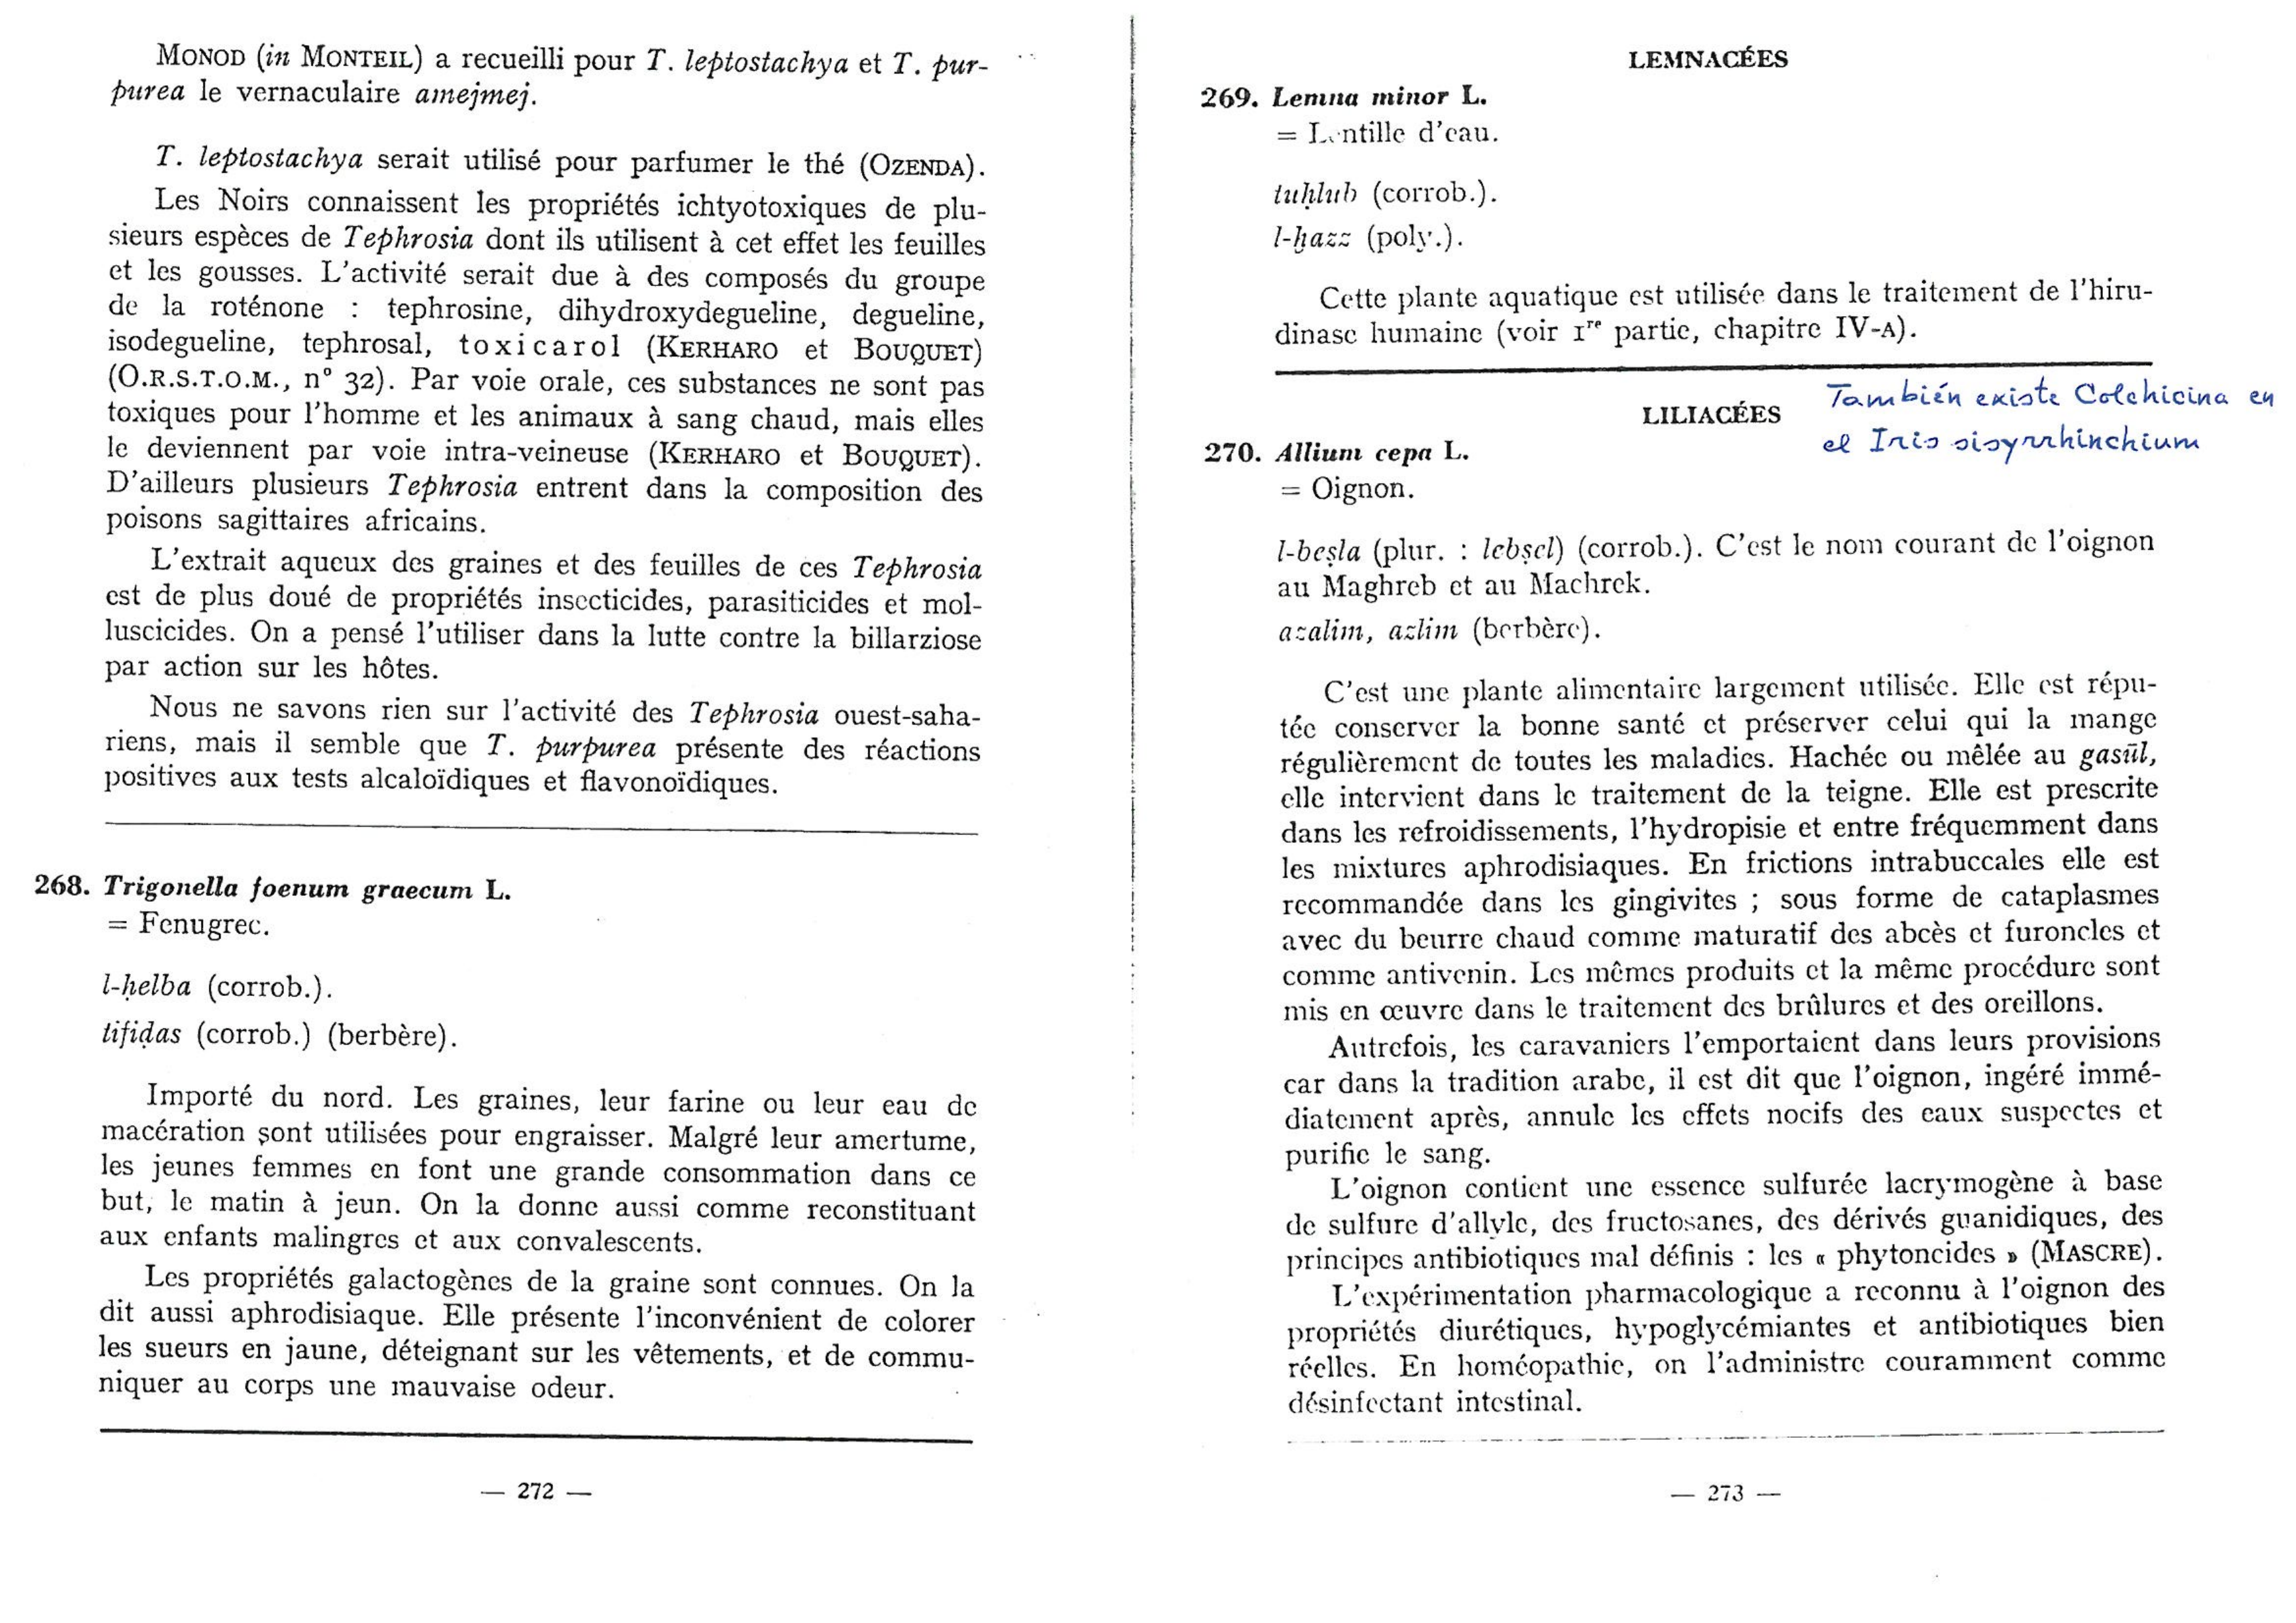 MONOD (in MONTEIL) a recueilli pour T. leptostachya et T. pur-
purea le vernaculaire amejmej.
T. leptostachya serait utilisé pour parfumer le thé (OZENDA).
Les Noirs connaissent les propriétés ichtyotoxiques de plu-
sieurs espèces de Tephrosia dont ils utilisent à cet effet les feuilles
et les gousses. L'activité serait due à des composés du groupe
de la roténone : tephrosine, dihydroxydegueline, degueline,
isodegueline, tephrosal, toxicarol (KERHARO et BOUQUET)
(O.R.S.T.O.M., n° 32). Par voie orale, ces substances ne sont pas
toxiques pour l'homme et les animaux à sang chaud, mais elles
le deviennent par voie intra-veineuse (KERHARO et BOUQUET).
D'ailleurs plusieurs Tephrosia entrent dans la composition des
poisons sagittaires africains.
L'extrait aqueux des graines et des feuilles de ces Tephrosia
est de plus doué de propriétés insecticides, parasiticides et mol-
luscicides. On a pensé l'utiliser dans la lutte contre la billarziose
par action sur les hôtes.
Nous ne savons rien sur l'activité des Tephrosia ouest-saha-
riens, mais il semble que T. purpurea présente des réactions
positives aux tests alcaloïdiques et flavonoïdiques.
268. Trigonella foenum graecum L.
= Fenugrec.
l-ḥelba (corrob.).
tifiḍas (corrob.) (berbère).
Importé du nord. Les graines, leur farine ou leur eau de
macération sont utilisées pour engraisser. Malgré leur amertume,
les jeunes femmes en font une grande consommation dans ce
but, le matin à jeun. On la donne aussi comme reconstituant
aux enfants malingres et aux convalescents.
Les propriétés galactogènes de la graine sont connues. On la
dit aussi aphrodisiaque. Elle présente l'inconvénient de colorer
les sueurs en jaune, déteignant sur les vêtements, et de commu-
niquer au corps une mauvaise odeur.
— 272 —
LEMNACÉES
269. Lemna minor L.
= Lentille d'eau.
tuḥlub (corrob.).
l-ḫazz (poly.).
Cette plante aquatique est utilisée dans le traitement de l'hiru-
dinase humaine (voir Ire partie, chapitre IV-A).
LILIACÉES
También existe Colchicina en
el Iris sisyrrhinchium
270. Allium cepa L.
= Oignon.
l-beṣla (plur. : lebṣel) (corrob.). C'est le nom courant de l'oignon
au Maghreb et au Machrek.
azalim, azlim (berbère).
C'est une plante alimentaire largement utilisée. Elle est répu-
tée conserver la bonne santé et préserver celui qui la mange
régulièrement de toutes les maladies. Hachée ou mêlée au gasūl,
elle intervient dans le traitement de la teigne. Elle est prescrite
dans les refroidissements, l'hydropisie et entre fréquemment dans
les mixtures aphrodisiaques. En frictions intrabuccales elle est
recommandée dans les gingivites ; sous forme de cataplasmes
avec du beurre chaud comme maturatif des abcès et furoncles et
comme antivenin. Les mêmes produits et la même procédure sont
mis en œuvre dans le traitement des brûlures et des oreillons.
Autrefois, les caravaniers l'emportaient dans leurs provisions
car dans la tradition arabe, il est dit que l'oignon, ingéré immé-
diatement après, annule les effets nocifs des eaux suspectes et
purifie le sang.
L'oignon contient une essence sulfurée lacrymogène à base
de sulfure d'allyle, des fructosanes, des dérivés guanidiques, des
principes antibiotiques mal définis : les « phytoncides » (MASCRE).
L'expérimentation pharmacologique a reconnu à l'oignon des
propriétés diurétiques, hypoglycémiantes et antibiotiques bien
réelles. En homéopathie, on l'administre couramment comme
désinfectant intestinal.
— 273 —